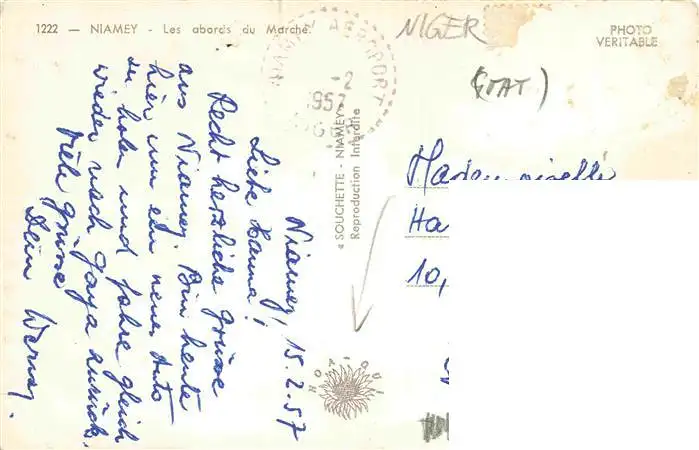 1222 — NIAMEY - Les abords du Marché.
NIGER
PHOTO
VERITABLE
(ETAT)
NIAMEY AEROPORT
-2
1957
NIGER
Niamey, 15.2.57
Liebe Hanna!
Recht herzliche Grüsse
aus Niamey. Bin heute
hier um ein neues Auto
zu holen und fahre gleich
wieder nach Gaya zurück.
Viele Grüsse
Dein Werner.
« SOUCHETTE - NIAMEY »
Reproduction Interdite
HOA-QUI
Mademoiselle
Ha
10,